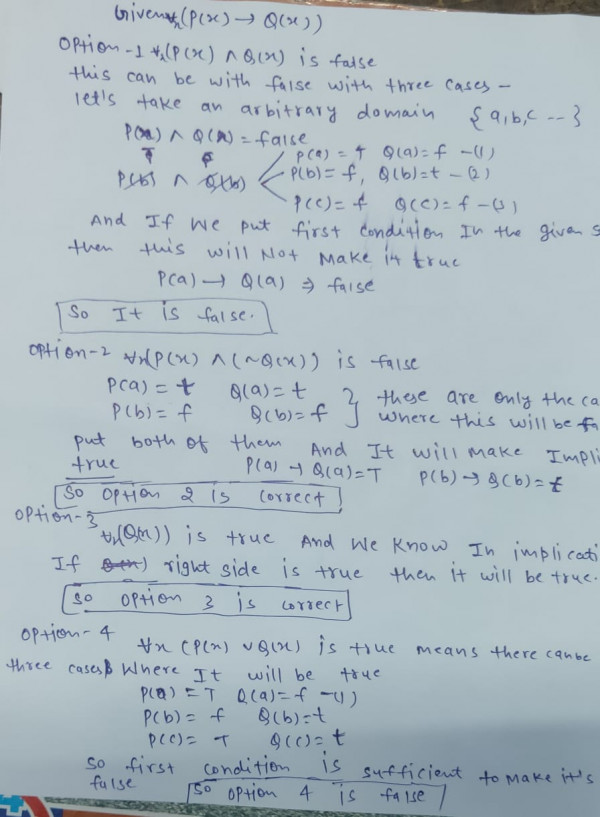 Given ∀x(P(x) → Q(x))
Option-1 ∀x(P(x) ∧ Q(x) is false
this can be with false with three cases -
let's take an arbitrary domain {a,b,c --}
P(a) ∧ Q(a) = false
P(a) = t Q(a)= f -(1)
T F
P(b) ∧ Q(b)
P(b)= f, Q(b)=t -(2)
P(c)= f Q(c)= f -(3)
And If We put first condition In the given
then this will Not Make it true
P(a) → Q(a) ⇒ false
So It is false.
option-2 ∀x(P(x) ∧ (~Q(x)) is false
P(a) = t Q(a)= t } these are only the ca
P(b) = f Q(b)= f where this will be fa
put both of them And It will make Impli
true P(a) → Q(a)=T P(b) → Q(b)= t
So Option 2 is correct
option-3
∀x(Q(x)) is true And We Know In implicati
If right side is true then it will be true.
So option 3 is correct
Option-4 ∀x (P(x) ∨ Q(x) is true means there can be
three cases Where It will be true
P(a) = T Q(a)= f -(1)
P(b) = f Q(b)=t
P(c)= T Q(c)= t
So first condition is sufficient to make it's
false So option 4 is false